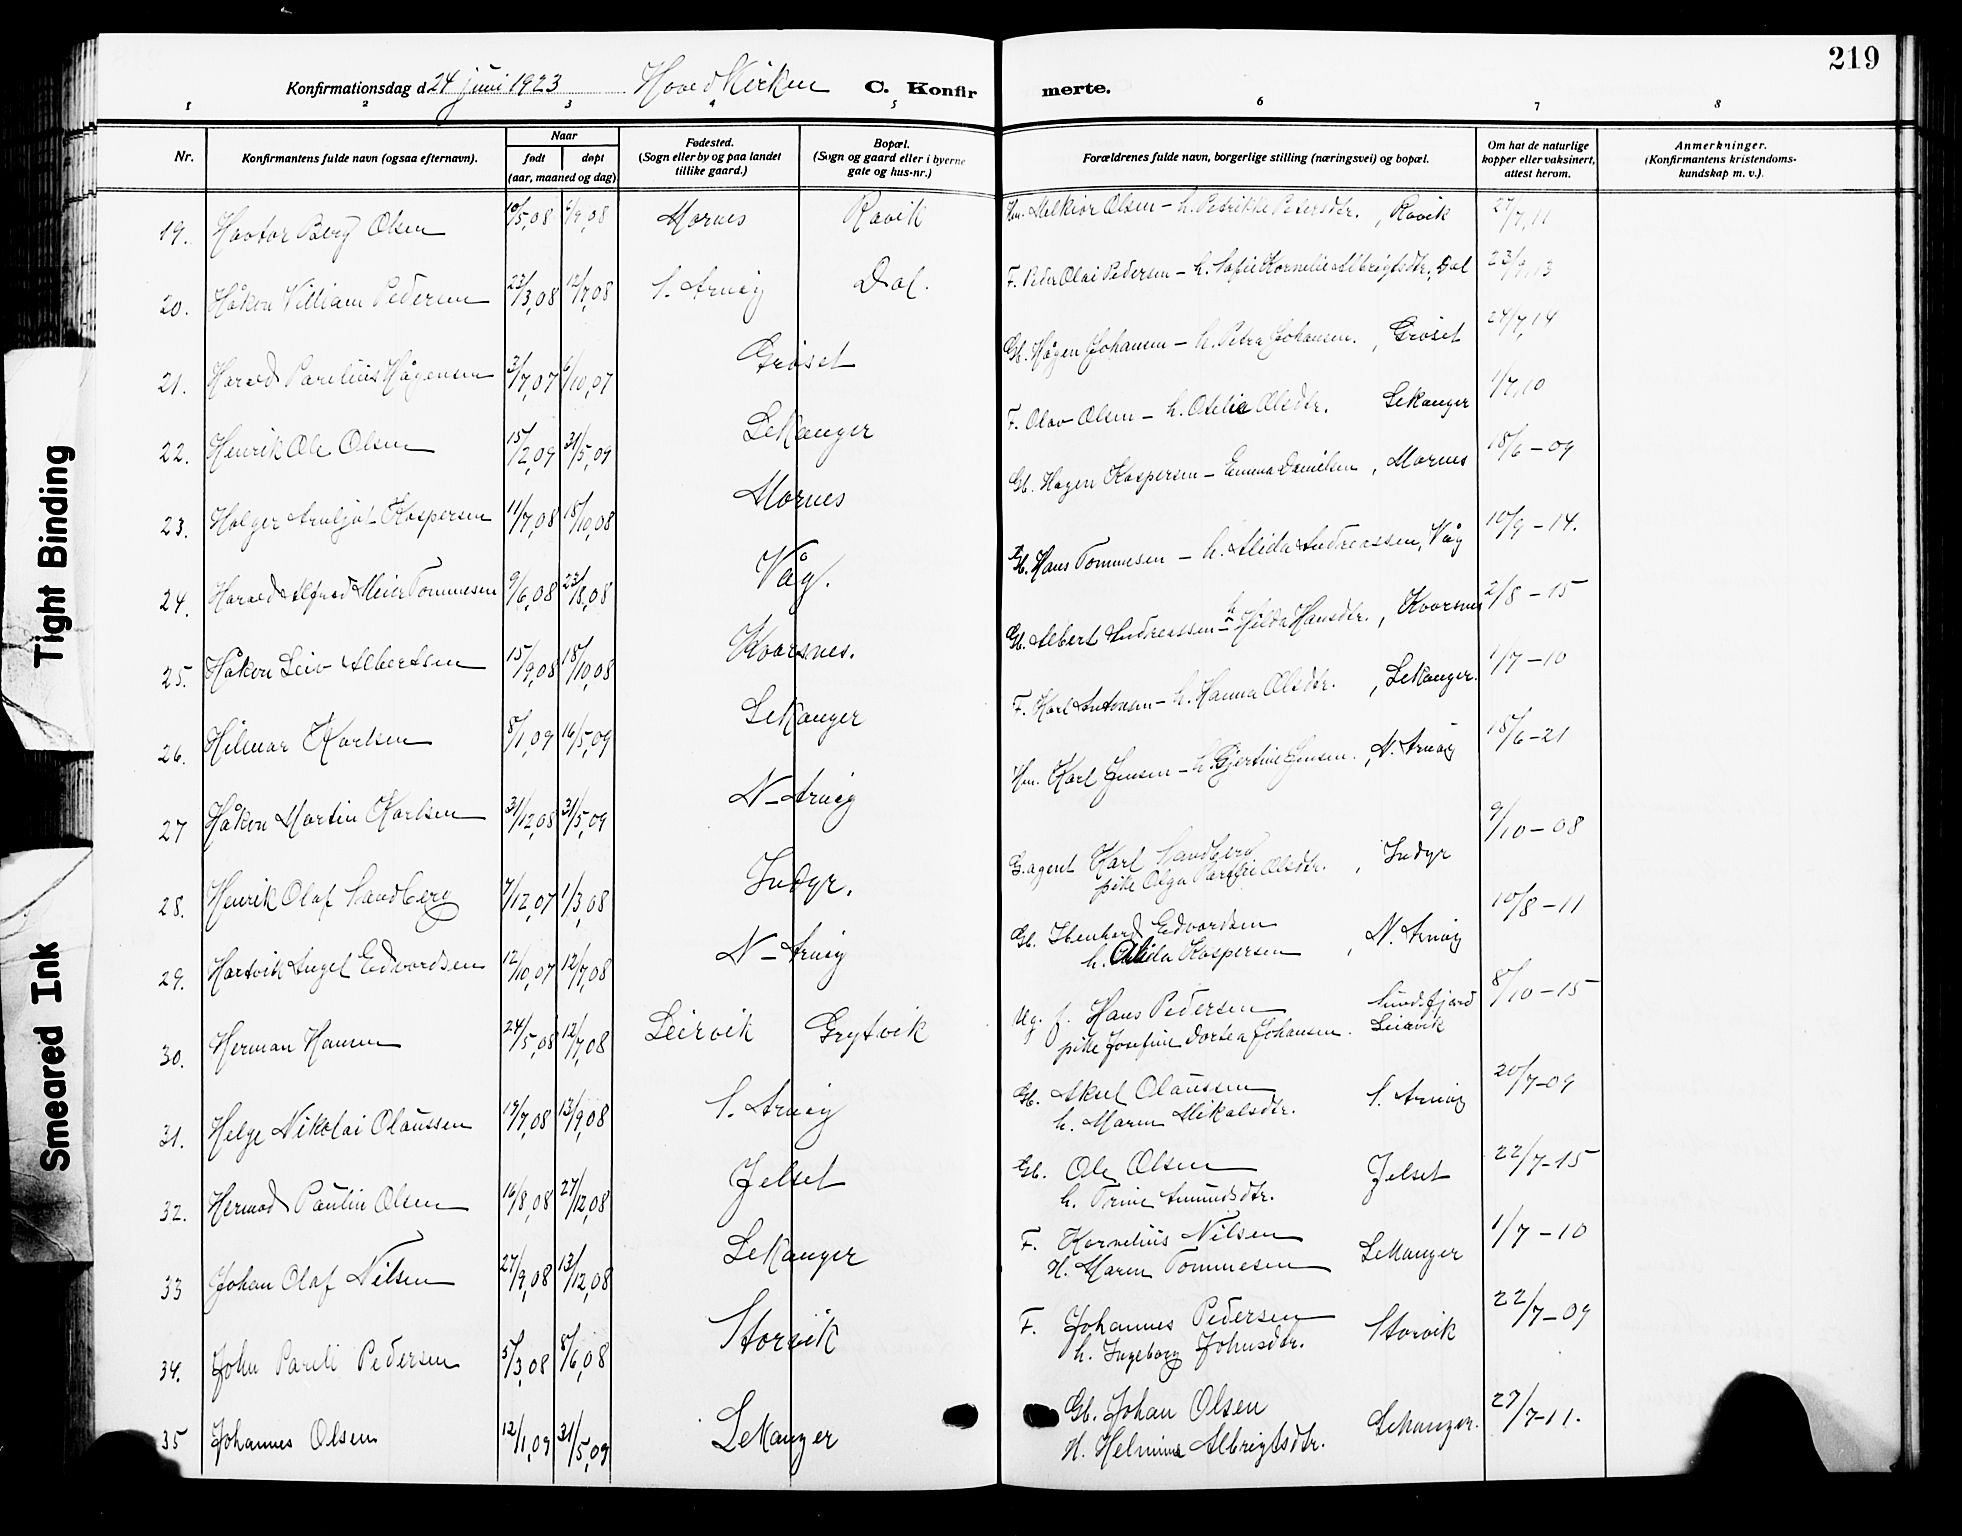 219
Konfirmationsdag d 24 juni 1923 Hovedkirken C. Konfir merte.
1 2 3 4 5 6 7 8
Nr. Konfirmantens fulde navn (ogsaa efternavn). Naar født døpt (aar, maaned og dag) Fødested. (Sogn eller by og paa landet tillike gaard.) Bopæl. (Sogn og gaard eller i byerne gate og hus-nr.) Forældrenes fulde navn, borgerlige stilling (næringsvei) og bopæl. Om hat de naturlige kopper eller vaksinert, attest herom. Anmerkninger. (Konfirmantens kristendoms- kundskap m. v.).
19. Havtor Berg Olsen 10/5,08 6/9,08 Mornes Råvik Hm. Melkior Olsen – h. Petrikke Petersdtr., Råvik 27/7,11
20. Håkon Villiam Pedersen 23/3,08 12/7,08 S. Arnøy Dal. F. Peder Olai Pedersen – h. Sofie Kornelie Albrigtsdtr., Dal 23/9,13
21. Harald Parelius Hågensen 3/7,07 6/10,07 Grøset Gb. Hågen Johansen – h. Petra Johansen., Grøset 24/7,14
22. Henrik Ole Olsen 15/2,09 31/5,09 Lekanger F. Olav Olsen – h. Otelie Olsdtr. Lekanger 1/7,10
23. Holger Arnljot Kaspersen 11/7,08 18/10,08 Mornes Gb. Hagen Kaspersen – Emma Danielsen, Mornes 18/6–09
24. Harald Alfred Meier Tommesen 9/6,08 23/8,08 Våg. Gb. Hans Tommesen – h. Alida Andreassen, Våg 10/9–14.
25. Håkon Leiv Albertsen 15/9,08 18/10,08 Kvarsnes. Gb. Albert Andreassen – h. Hilda Hansdtr., Kvarsnes 2/8–15
26. Hilmar Karlsen 8/1,09 16/5,09 Lekanger F. Karl Antonsen – h. Hanna Olsdtr., Lekanger. 1/7–10
27 Håkon Martin Karlsen 31/12,08 31/5,09 N–Arnøy Hm. Karl Jensen – h. Gjertine Jensen., N. Arnøy 18/6–21
28. Henrik Olaf Sandberg 7/12,07 1/3,08 Indyr. G. agent Karl Sandberg
pike Olga Olsdtr., Indyr 9/10–08
29. Hartvik Angel Edvardsen 12/10,07 12/7,08 N–Arnøy Gb. Ibenhard Edvardsen
h. Alida Kaspersen, N. Arnøy 10/8–11
30. Herman Hansen 24/5,08 12/7,08 Leirvik Grytvik Ug. f. Hans Pedersen Sundsfjord
pike Josefine Dortea Johansen. Leirvik 8/10–15
31. Helge Nikolai Olaussen 19/7,08 13/9,08 S. Arnøy Gb. Aksel Olaussen
h. Maren Mikalsdtr. S. Arnøy 20/7–09
32. Hermod Paulin Olsen 16/8,08 27/12,08 Jelset Gb. Ole Olsen
h. Trine Amundsdtr. Jelset 22/7–15
33 Johan Olaf Nilsen 27/9,08 13/12,08 Lekanger F. Kornelius Nilsen
H. Maren Tommesen Lekanger 1/7–10
34. John Pareli Pedersen 5/3,08 8/6,08 Storvik F. Johannes Pedersen
h. Ingeborg Johnsdtr. Storvik 22/7–09
35 Johannes Olsen 12/1,09 31/5,09 Lekanger Gb. Johan Olsen
H. Helmine Albrigtsdtr. Lekanger. 27/7–11.
Tight Binding
Smeared Ink